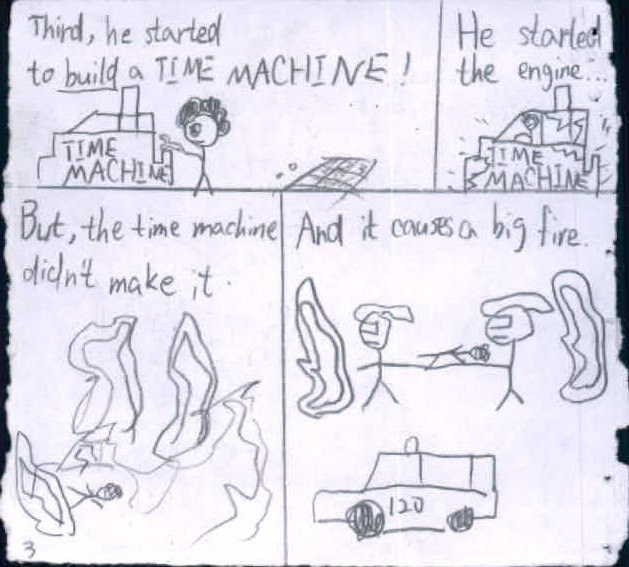 Third, he started
to build a TIME MACHINE!
TIME
MACHINE
He started
the engine...
TIME
MACHINE
But, the time machine
didn't make it.
3
And it causes a big fire.
120